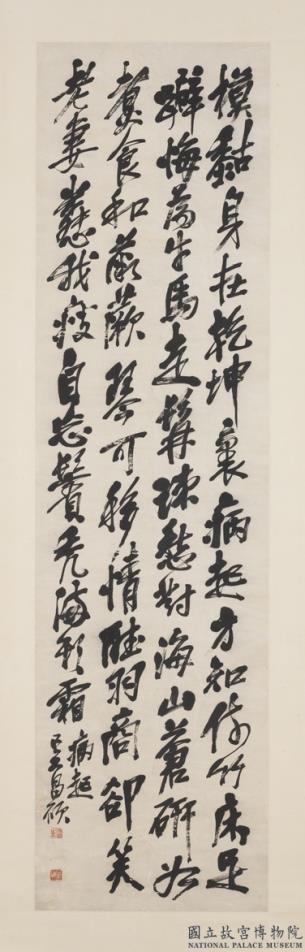 模黏身在乾坤裏病起方知傍竹床足
躃悔為牛馬走髯疎愁對海山蒼研如
煑食和薇蕨琴可移情聽羽商卻笑
老妻愁我瘦自忘鬢禿滿形霜
病起
吳昌碩
國立故宮博物院
NATIONAL PALACE MUSEUM